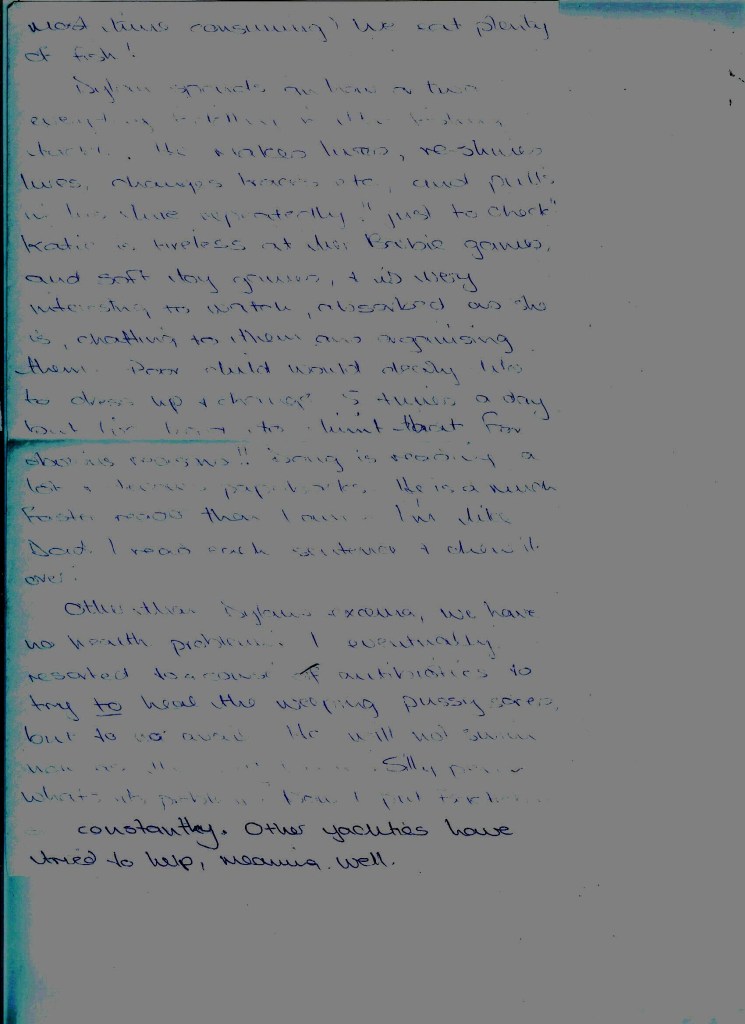 most time consuming) We eat plenty
of fish!
Dylan spends an hour or two
everything in the fishing
He makes lures, re-shines
lures, changes traces etc, and pulls
in his line repeatedly "just to check"
Katie is tireless at her Barbie games,
and soft toy games, & is very
interesting to watch, absorbed as she
is, chatting to them and organising
them. Poor child would dearly like
to dress up & change 5 times a day
but I've had to limit that for
obvious reasons!! Doug is reading a
lot He is a much
faster reader than I am. I'm like
Dad. I read each sentence & chew it
over.
Other than Dylans excema, we have
no health problems. I eventually
resorted to a course of antibiotics to
try to heal the weeping pussy sores,
but to no avail. He will not swim
now as the Silly
what's its problem I put
constantly. Other yachties have
tried to help, meaning well.